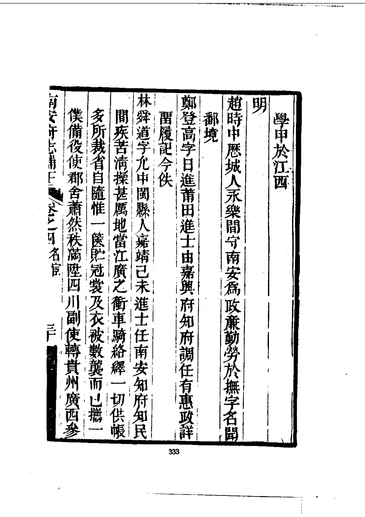 學甲於江西
明
趙時中歷城人永樂間守南安爲政廉勤勞於撫字名聞
鄰境
鄭登高字日進莆田進士由嘉興府知府調任有惠政詳
畱履記今佚
林舜道字允中閩縣人嘉靖己未進士任南安知府知民
間疾苦淸操甚厲地當江廣之衝車騎絡繹一切供帳
多所裁省自隨惟一篋貯冠裳及衣被數襲而已攜一
僕備役使郡舍蕭然秩滿陞四川副使轉貴州廣西參
南安府志補正 卷之四名宦
333